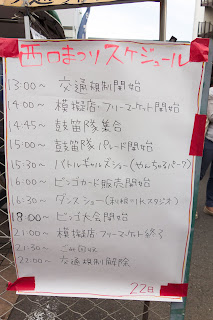 西口まつり スケジュール
13:00〜 交通規制開始
14:00〜 模擬店・フリーマーケット開始
14:45〜 鼓笛隊集合
15:00〜 鼓笛隊パレード開始
15:30〜 バトルギャルズショー(やんちゃるパーク)
16:00〜 ビンゴカード販売開始
16:30〜 ダンスショー(スタジオ)
18:00〜 ビンゴ大会開始
21:00〜 模擬店 フリーマーケット終了
21:30〜 ごみ回収
22:00〜 交通規制解除
22日